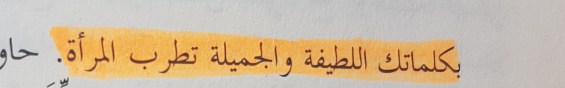 بكلماتك اللطيفة والجميلة تطرب المرأة. حاو